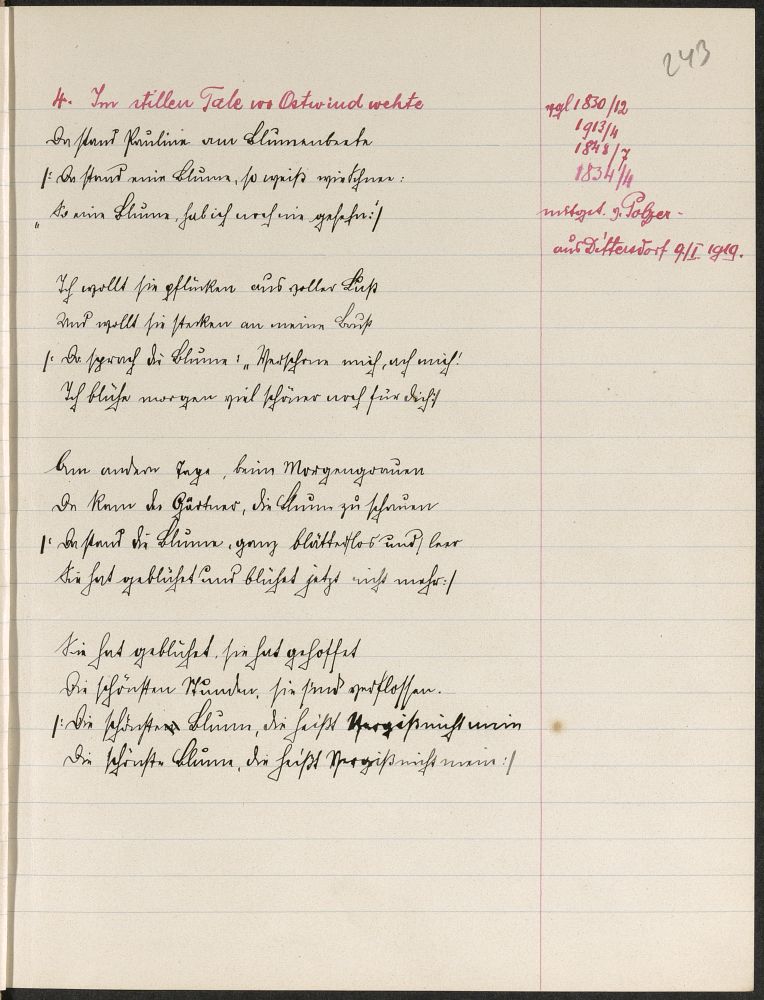 243
4. Im stillen Tale wo Ostwind wehte
Da stand Pauline am Blumenbeete
/: Da stand eine Blume, so weiß wie Schnee:
„ So eine Blume, hab ich noch nie gesehn :/
Ich wollt sie pflücken aus voller Lust
Und wollt sie stecken an meine Brust
/: Da sprach die Blume: „Verschone mich, ach mich!
Ich blühe morgen viel schöner noch für dich :/
Am andern Tage, beim Morgengrauen
Da kam der Gärtner, die Blum zu schauen
/: Da stand die Blume, ganz blätterlos und leer
Sie hat geblühet und blühet jetzt nicht mehr :/
Sie hat geblühet, sie hat gehoffet
Die schönsten Stunden, sie sind verflossen.
/: Die schönste Blum, die heißt Vergißnichtmein
Die schönste Blume, die heißt Vergißnichtmein :/
vgl 1830/12
1913/4
1848/7
1834/4
mitget. v. Polzer-
aus Dittersdorf 9/I 1919.